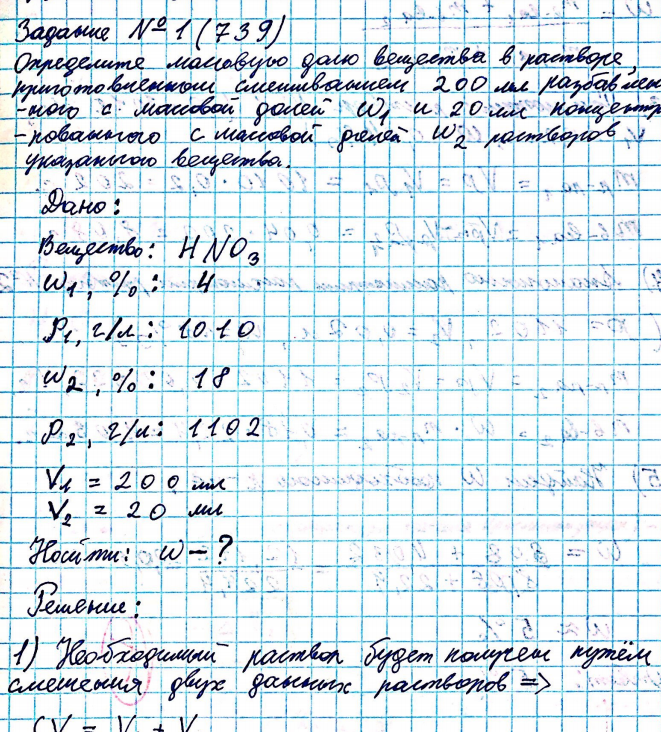 Задание № 1 (739)
Определите массовую долю вещества в растворе,
приготовленном смешиванием 200 мл разбавлен
-ного с массовой долей ω1 и 20 мл концентр
-рованного с массовой долей ω2 растворов
указанного вещества.
Дано:
Вещество: HNO3
ω1, %: 4
ρ1, г/л: 1010
ω2, %: 18
ρ2, г/л: 1102
V1 = 200 мл
V2 = 20 мл
Найти: ω - ?
Решение:
1) Необходимый раствор будет получен путём
смешения двух данных растворов =>